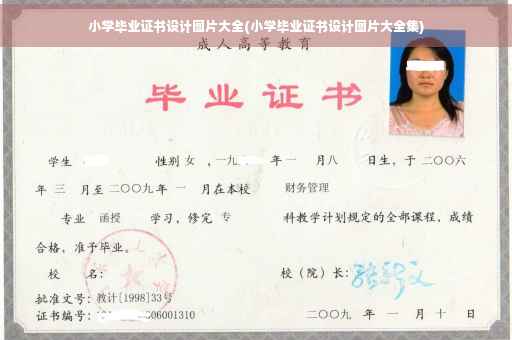 小学毕业证书设计图片大全(小学毕业证书设计图片大全集)
成人高等教育
毕业证书
学生 性别 女 ，一九 年 一 月八 日生，于 二〇〇六
年 三 月至 二〇〇九年 一 月在本校 财务管理
专业 函授 学习，修完 专 科教学计划规定的全部课程，成绩
合格，准予毕业。
校 名： 校（院）长：
批准文号：教计[1998]33号
证书编号： 06001310 二〇〇九 年 一 月 十 日